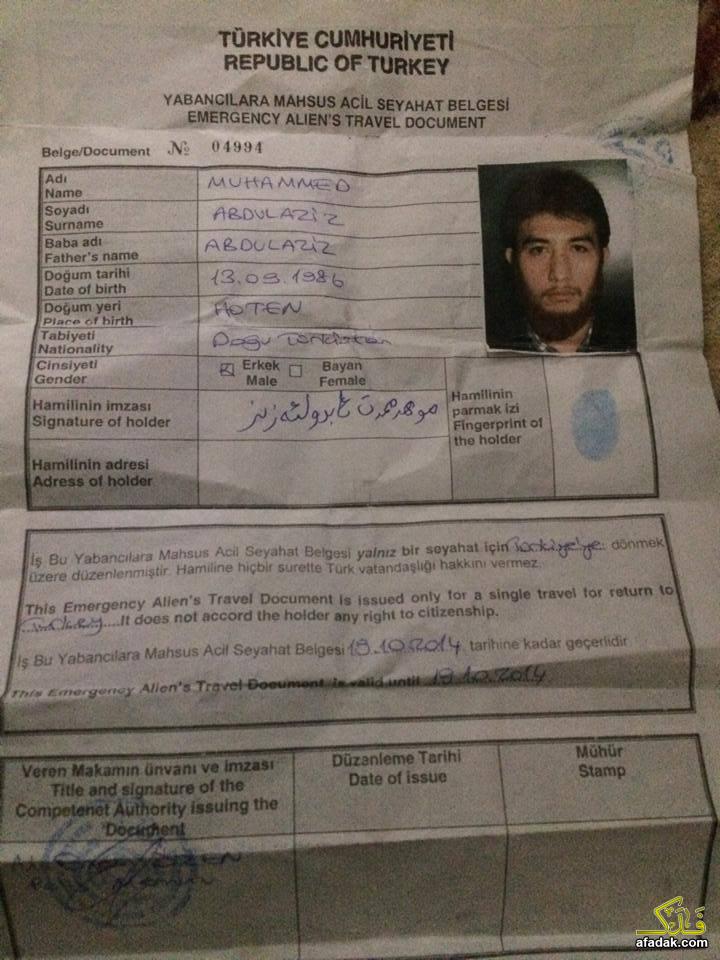 TÜRKİYE CUMHURİYETİ
REPUBLIC OF TURKEY
YABANCILARA MAHSUS ACİL SEYAHAT BELGESİ
EMERGENCY ALIEN'S TRAVEL DOCUMENT
Belge/Document № 04994
Adı
Name
MUHAMMED
Soyadı
Surname
ABDULAZİZ
Baba adı
Father's name
ABDULAZİZ
Doğum tarihi
Date of birth
13.09.1986
Doğum yeri
Place of birth
HOTEN
Tabiyeti
Nationality
Doğu Türkistan
Cinsiyeti
Gender
Erkek
Male
Bayan
Female
Hamilinin imzası
Signature of holder
Hamilinin parmak izi
Fingerprint of the holder
Hamilinin adresi
Adress of holder
İş Bu Yabancılara Mahsus Acil Seyahat Belgesi yalnız bir seyahat için Türkiye'ye dönmek
üzere düzenlenmiştir. Hamiline hiçbir surette Türk vatandaşlığı hakkını vermez.
This Emergency Alien's Travel Document is issued only for a single travel for return to
Turkey....It does not accord the holder any right to citizenship.
İş Bu Yabancılara Mahsus Acil Seyahat Belgesi 19.10.2014 tarihine kadar geçerlidir
This Emergency Alien's Travel Document is valid until 19.10.2014
Veren Makamın ünvanı ve imzası
Title and signature of the
Competenet Authority issuing the
Document
Düzanleme Tarihi
Date of issue
Mühür
Stamp
afadak.com